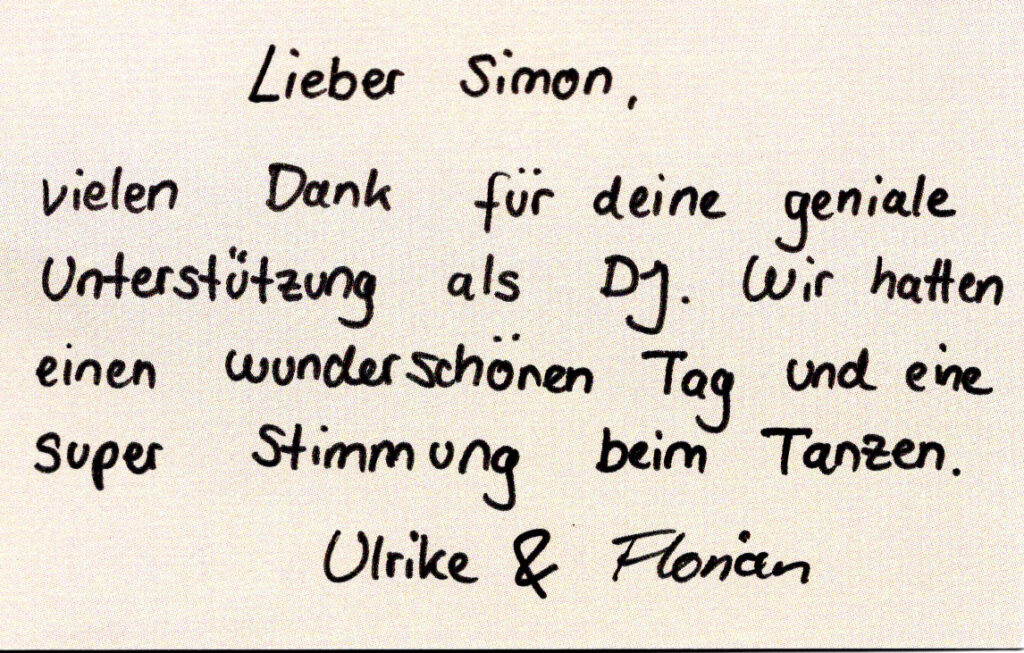 Lieber Simon,
vielen Dank für deine geniale
Unterstützung als DJ. Wir hatten
einen wunderschönen Tag und eine
super Stimmung beim Tanzen.
Ulrike & Florian